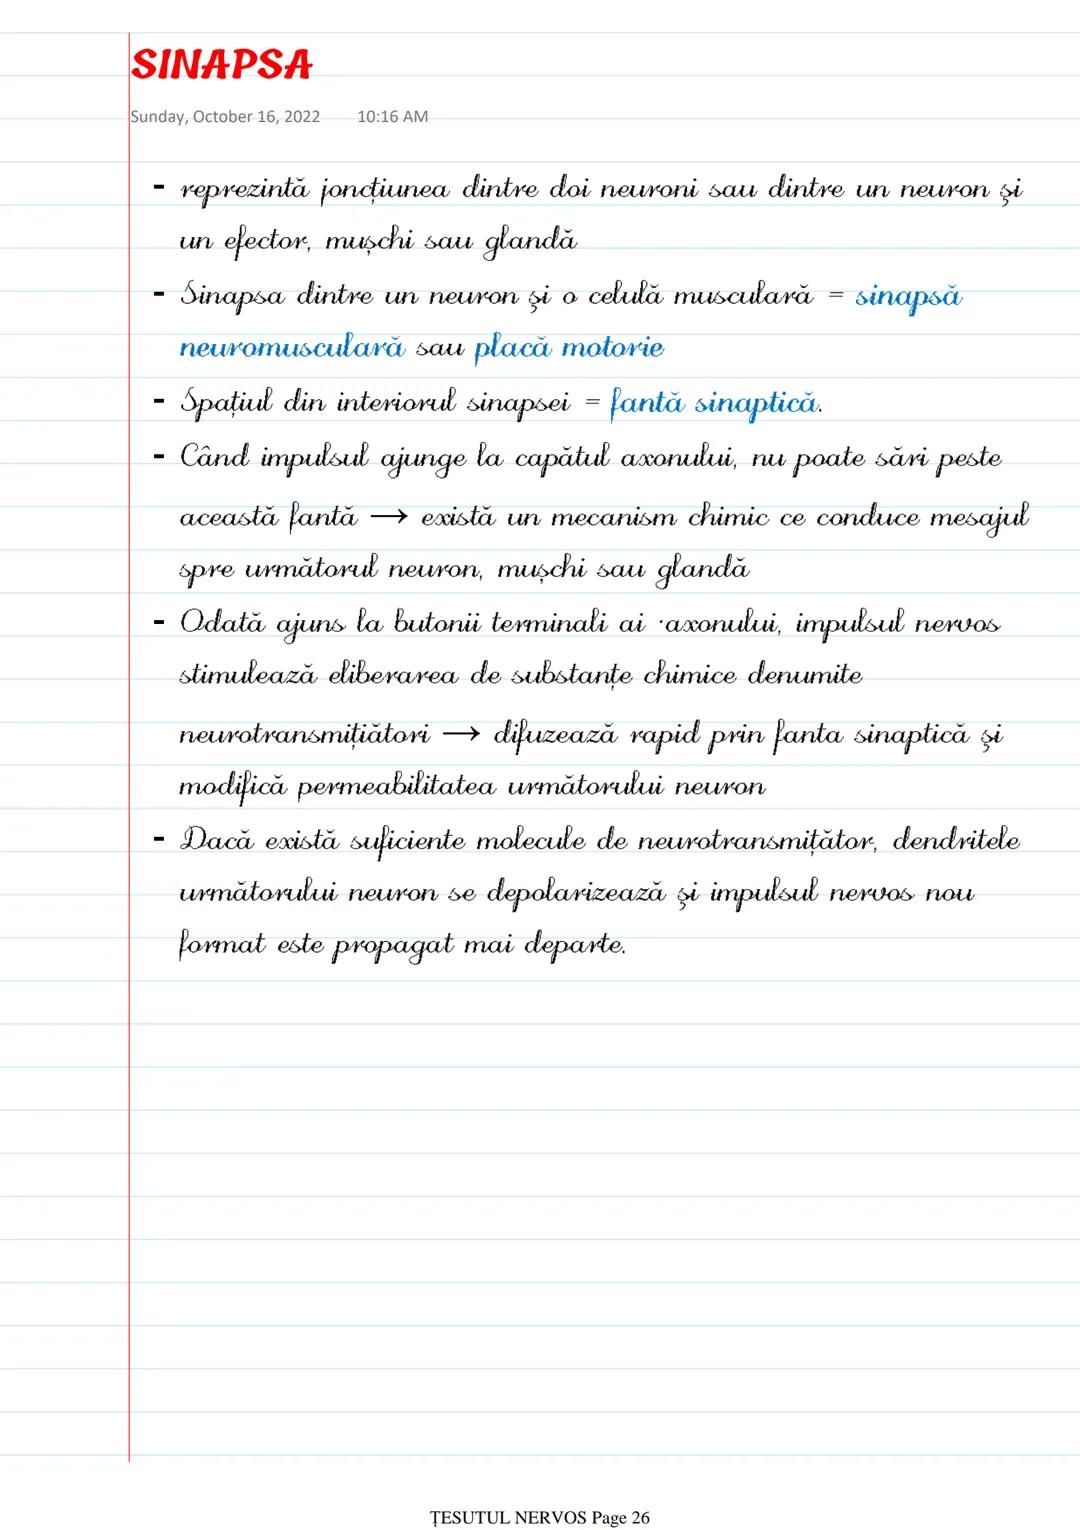 SINAPSA
Sunday, October 16, 2022 10:16 AM
- reprezintă joncțiunea dintre doi neuroni sau dintre un neuron și
un efector, mușchi sau glandă
- Sinapsa dintre un neuron și o celulă musculară = sinapsă
neuromusculară sau placă motorie
- Spațiul din interiorul sinapsei = fantă sinaptică.
- Când impulsul ajunge la capătul axonului, nu poate sări peste
această fantă → există un mecanism chimic ce conduce mesajul
spre următorul neuron, mușchi sau glandă
- Odată ajuns la butonii terminali ai ·axonului, impulsul nervos
stimulează eliberarea de substanțe chimice denumite
neurotransmițiători → difuzează rapid prin fanta sinaptică și
modifică permeabilitatea următorului neuron
- Dacă există suficiente molecule de neurotransmițător, dendritele
următorului neuron se depolarizează și impulsul nervos nou
format este propagat mai departe.
ȚESUTUL NERVOS Page 26